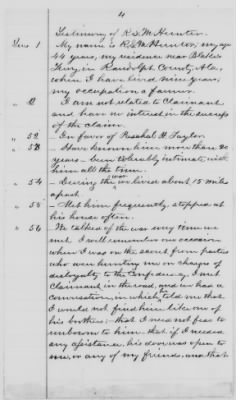 4
Testimony of R. S. M. Hunter.
Ques 1 My name is R. S. M. Hunter, my age
44 years, my residence near Blake's
Ferry in Randolph County, Ala,
where I have lived nine years,
my occupation a farmer.
" 2 I am not related to Claimant
and have no interest in the success
of the claim.
" 52 - In favor of Paschal H. Taylor.
" 53 - Have known him more than 20
years - been tolerably intimate with
him all the time.
" 54 - During the war lived about 15 miles
apart.
" 55 - Met him frequently, stopped at
his house often.
" 56 - We talked of the war every time we
met. I well remember one occasion
when I was on the dodge from parties
who were hunting me on charges of
disloyalty to the Confederacy, I met
Claimant in the road, and we had a
conversation, in which he told me that
I would not find him like one of
his brothers; that I need not fear to
unbosom to him - that if I needed
any assistance, his door was open to
me, or any of my friends, and that